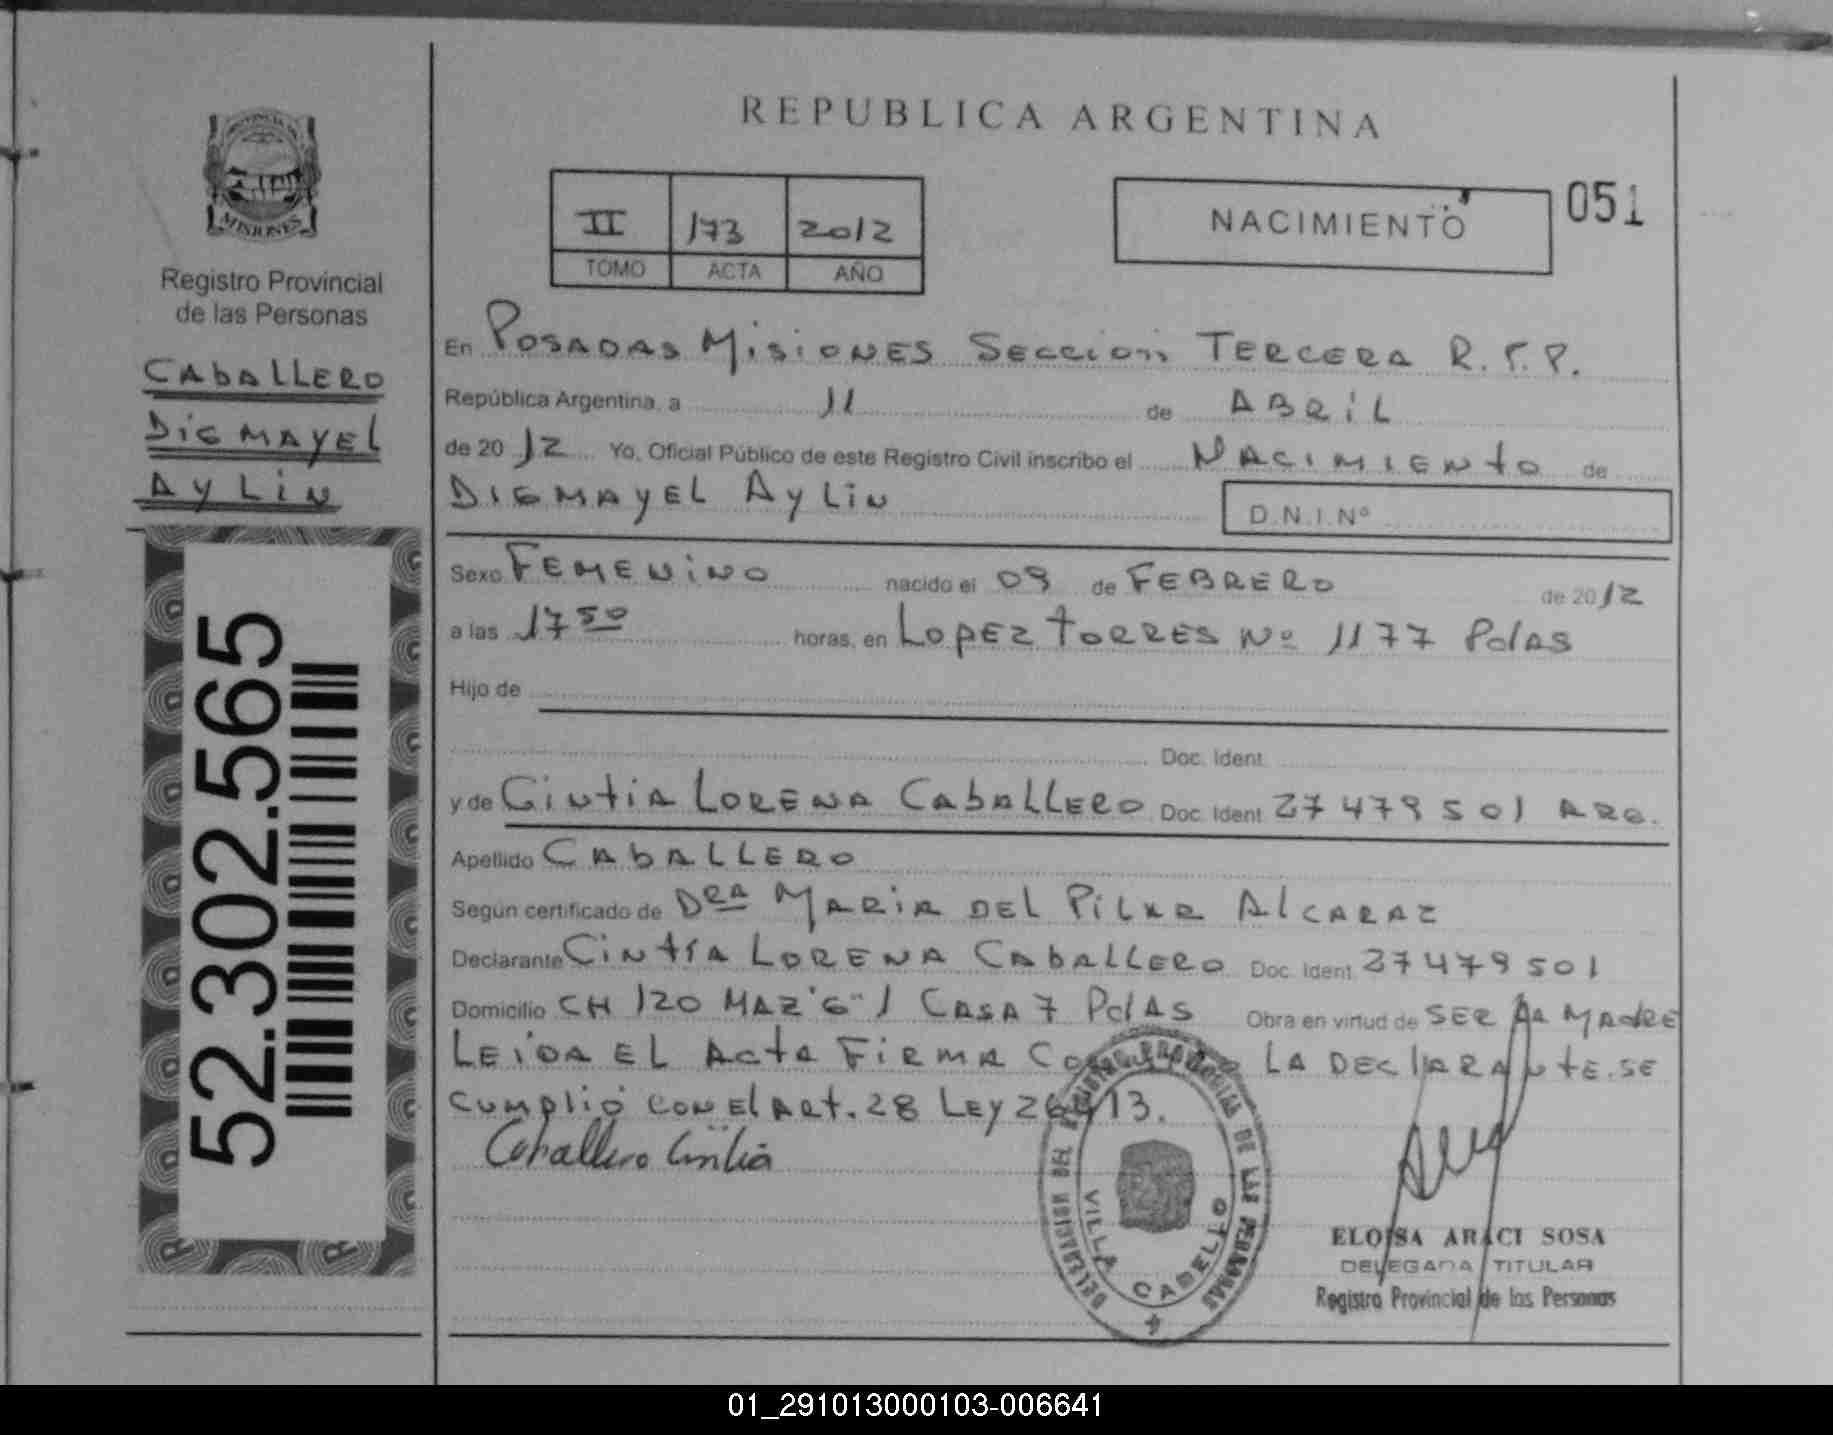 REPUBLICA ARGENTINA
MISIONES
Registro Provincial
de las Personas
CABALLERO
DIGMAYEL
AYLIN
52.302.565
II 173 2012
TOMO ACTA AÑO
NACIMIENTO
051
En POSADAS MISIONES SECCION TERCERA R.P.P.
República Argentina, a 11 de ABRIL
de 2012 Yo, Oficial Público de este Registro Civil inscribo el NACIMIENTO de
DIGMAYEL AYLIN D.N.I.Nº
Sexo FEMENINO nacido el 09 de FEBRERO de 2012
a las 17 50 horas, en LOPEZ TORRES Nº 1177 PdAS
Hijo de
Doc. Ident.
y de CINTIA LORENA CABALLERO Doc. Ident. 27479501 ARG.
Apellido CABALLERO
Según certificado de DRA MARIA DEL PILAR ALCARAZ
Declarante CINTIA LORENA CABALLERO Doc. Ident. 27479501
Domicilio CH 120 MAZ "G" / CASA 7 PdAS Obra en virtud de SER LA MADRE
LEIDA EL ACTA FIRMA LA DECLARANTE. SE
CUMPLIÓ CON EL ART. 28 LEY 26413.
Caballero Cintia
DELEGACION DEL REGISTRO PROVINCIAL DE LAS PERSONAS
VILLA CABELLO
ELOISA ARACI SOSA
DELEGADA TITULAR
Registro Provincial de las Personas
01_291013000103-006641